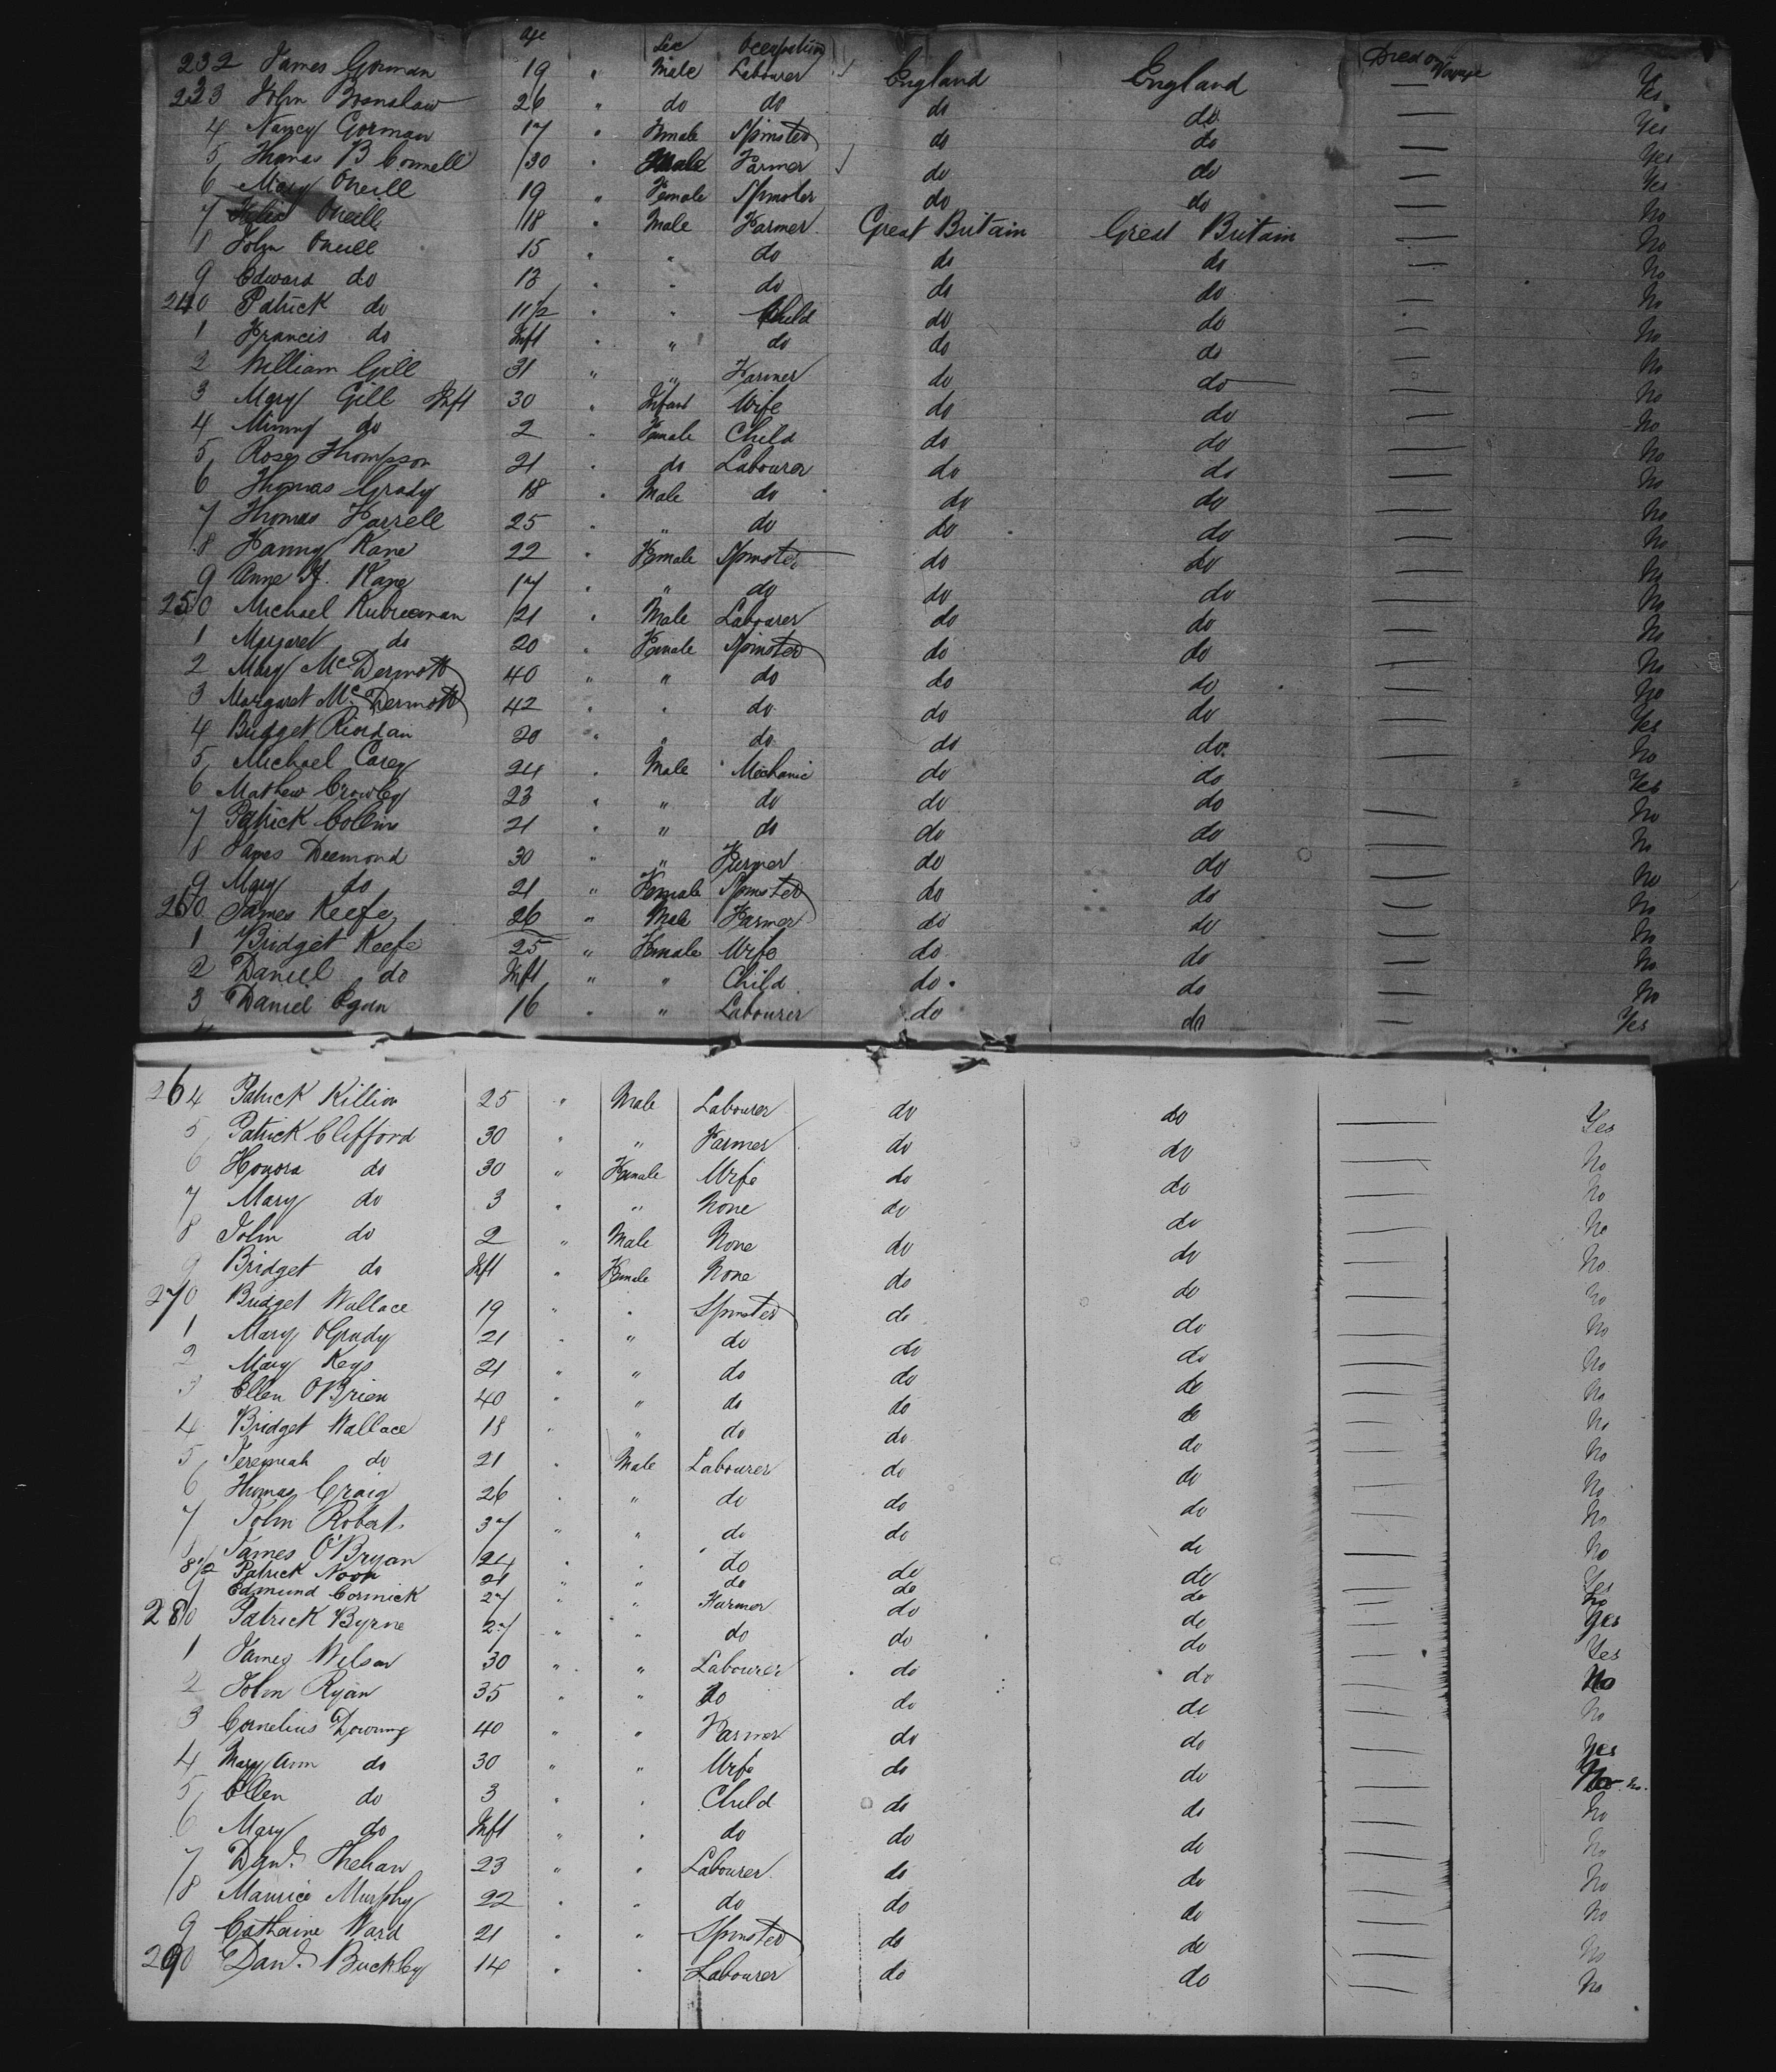 Age Sex Occupation Died on Voyage
232 James Gorman 19 " Male Labourer England England — Yes
233 John 26 " do do do do — Yes
4 Nancy Gorman 17 " Female Spinster do do — Yes
5 Thomas B Connell 30 " Male Farmer do do — Yes
6 Mary Oneill 19 " Female Spinster do do — No
7 Oneill 18 " Male Farmer Great Britain Great Britain — No
8 John Oneill 15 " " do do do — No
9 Edward do 13 " " do do do — No
240 Patrick do 11½ " " Child do do — No
1 Francis do Inft " " do do do — No
2 William Gill 31 " " Farmer do do — No
3 Mary Gill Inft 30 " Infant Wife do do — No
4 Minny do 2 " Female Child do do — No
5 Rose Thompson 21 " do Labourer do do — No
6 Thomas Grady 18 " Male do do do — No
7 Thomas Farrell 25 " " do do do — No
8 Fanny Kane 22 " Female Spinster do do — No
9 Anne Kane 17 " " do do do — No
250 Michael 21 " Male Labourer do do — No
1 Margaret do 20 " Female Spinster do do — No
2 Mary McDermott 40 " " do do do —
3 Margaret McDermott 42 " " do do do — Yes
4 Bridget Riordan 20 " " do do do — No
5 Michael Carey 24 " Male Mechanic do do — Yes
6 Mathew Crowley 23 " " do do do — No
7 Patrick Collins 21 " " do do do — No
8 James Desmond 30 " " Farmer do do — No
9 Mary do 21 " Female Spinster do do — No
260 James Keefe 26 " Male Farmer do do — No
1 Bridget Keefe 25 " Female Wife do do — No
2 Daniel do Inft " " Child do do — No
3 Daniel Egan 16 " " Labourer do do — Yes
264 Patrick Killion 25 " Male Labourer do do — Yes
5 Patrick Clifford 30 " " Farmer do do — No
6 Honora do 30 " Female Wife do do — No
7 Mary do 3 " " None do do — No
8 John do 2 " Male None do do — No
9 Bridget do Inft " Female None do do — No
270 Bridget Wallace 19 " " Spinster do do — No
1 Mary OGrady 21 " " do do do — No
2 Mary Keys 21 " " do do do — No
3 Ellen O'Brien 40 " " do do do — No
4 Bridget Wallace 18 " " do do do — No
5 Jeremiah do 21 " Male Labourer do do — No
6 Thomas Craig 26 " " do do do — No
7 John Roberts 37 " " do do do — No
8 James O'Bryan 24 " " do do do — Yes
8½ Patrick Noon 21 " " do do do — No
9 Edmund Cormick 27 " " Farmer do do — Yes
280 Patrick Byrne 27 " " do do do — Yes
1 James Wilson 30 " " Labourer do do — No
2 John Ryan 35 " " do do do — No
3 Cornelius Downing 40 " " Farmer do do — Yes
4 Mary Ann do 30 " " Wife do do — No No.
5 Ellen do 3 " " Child do do — No
6 Mary do Inft " " do do do — No
7 Danl. Shehan 23 " " Labourer do do — No
8 Maurice Murphy 22 " " do do do — No
9 Catherine Ward 21 " " Spinster do do — No
290 Danl. Buckley 14 " " Labourer do do — No